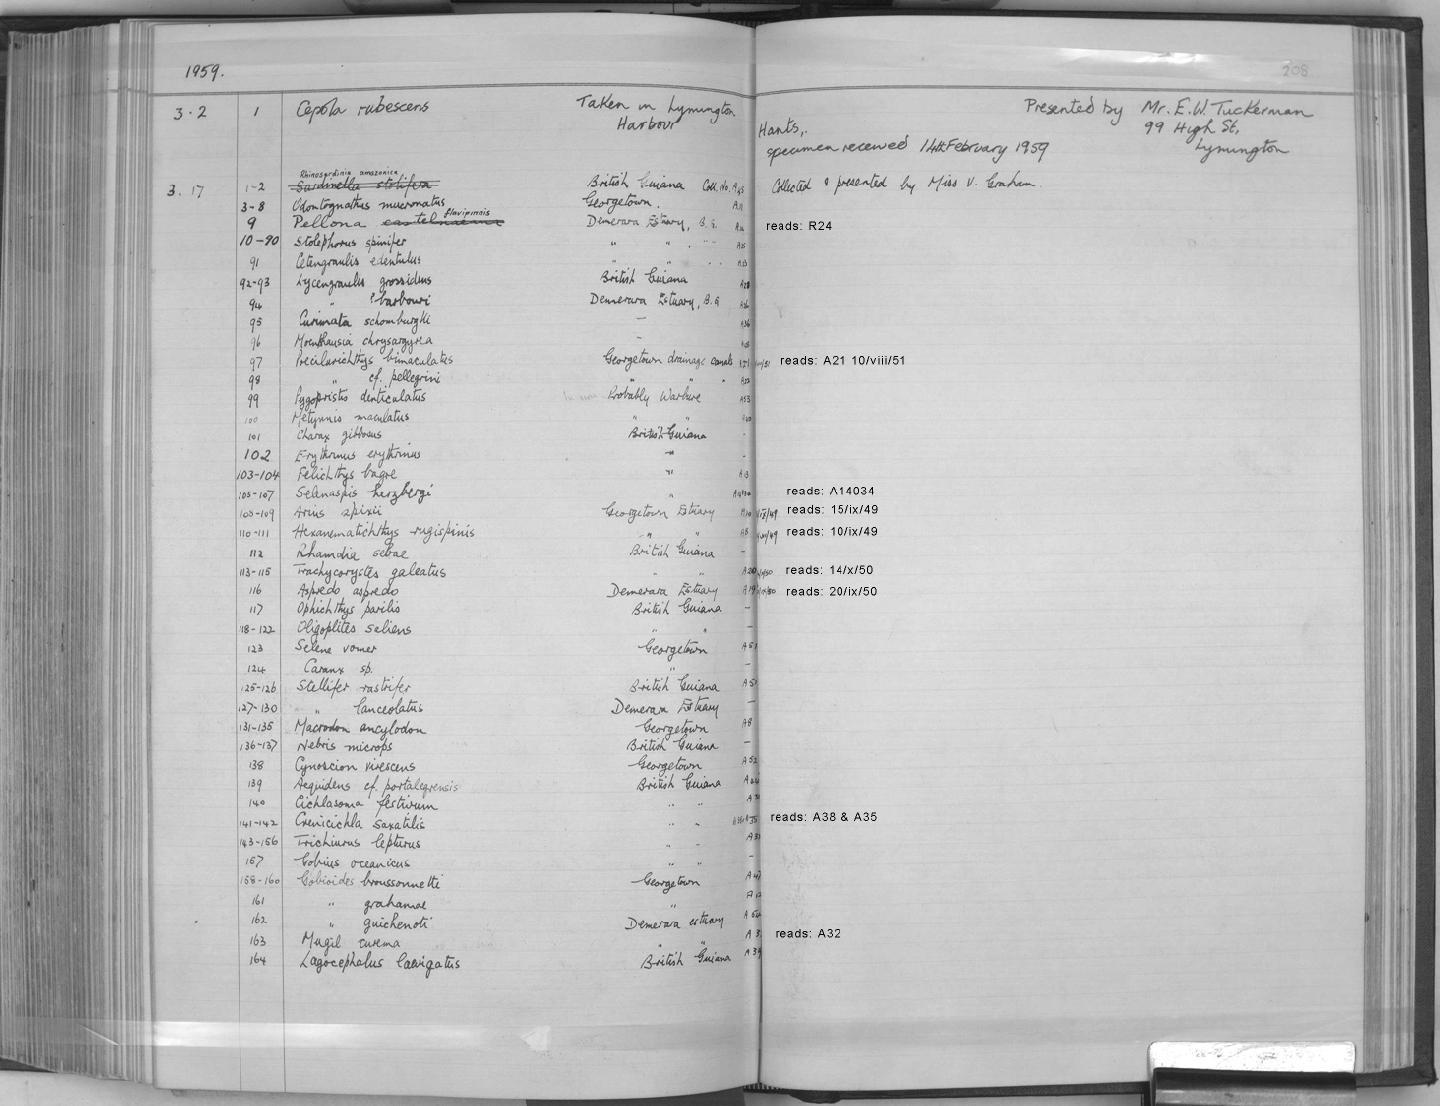 1959.
208
3.2 1 Cepola rubescens Taken in Lymington Harbour Hants,. Presented by Mr. E.W. Tuckerman
99 High St,
specimen received 14th February 1959 Lymington
Rhinosardinia amazonica
3.17 1-2 Sardinella stolifera British Guiana Coll. No. A45 Collected & presented by Miss V. Graham.
3-8 Odontognathus mucronatus Georgetown. A11
flavipinnis
9 Pellona castelnaeana Demerara Estuary, B.G. reads: R24
10-90 Stolephorus spinifer " " "
91 Cetengraulis edentulus " "
92-93 Lycengraulis grossidens British Guiana
94 " ? barbouri Demerara Estuary, B.G.
95 Curimata schomburgki — A36
96 Moenkhausia chrysargyrea —
97 Poecilurichthys bimaculatus Georgetown drainage canals reads: A21 10/viii/51
98 " cf. pellegrini " " " A22
99 Pygopristis denticulatus Probably Warbure A53
100 Metynnis maculatus " "
101 Charax gibbosus British Guiana -
102 Erythrinus erythrinus " -
103-104 Felichthys bagre " A13
105-107 Selenaspis herzbergi " reads: A14034
108-109 Arius spixii Georgetown Estuary A10 reads: 15/ix/49
110-111 Hexanematichthys rugispinis " " A8 reads: 10/ix/49
112 Rhamdia sebae British Guiana -
113-115 Trachycorystes galeatus " " A20 reads: 14/x/50
116 Aspredo aspredo Demerara Estuary A19 reads: 20/ix/50
117 Ophichthys parilis British Guiana -
118-122 Oligoplites saliens " " -
123 Selene vomer Georgetown A51
124 Caranx sp. " -
125-126 Stellifer rastrifer British Guiana A5
127-130 " lanceolatus Demerara Estuary -
131-135 Macrodon ancylodon Georgetown A8
136-137 Nebris microps British Guiana -
138 Cynoscion virescens Georgetown A52
139 Aequidens cf. portalegrensis British Guiana
140 Cichlasoma festivum " "
141-142 Crenicichla saxatilis " " reads: A38 & A35
143-156 Trichiurus lepturus " "
157 Gobius oceanicus " " -
158-160 Gobioides broussonnetti Georgetown A47
161 " grahamae " A12
162 " guichenoti Demerara estuary
163 Mugil curema " " A3 reads: A32
164 Lagocephalus laevigatus British Guiana A39